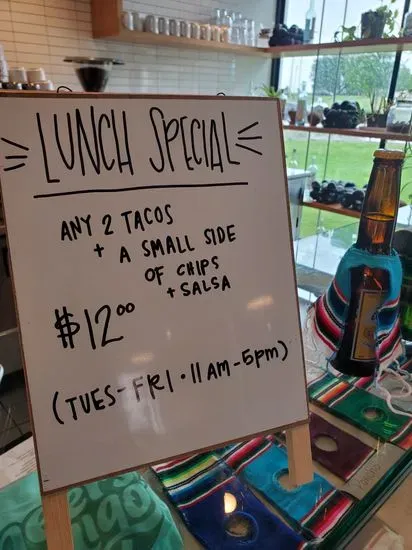 LUNCH SPECIAL
ANY 2 TACOS
+ A SMALL SIDE
OF CHIPS
+ SALSA
$12.00
(TUES-FRI • 11AM-5pm)